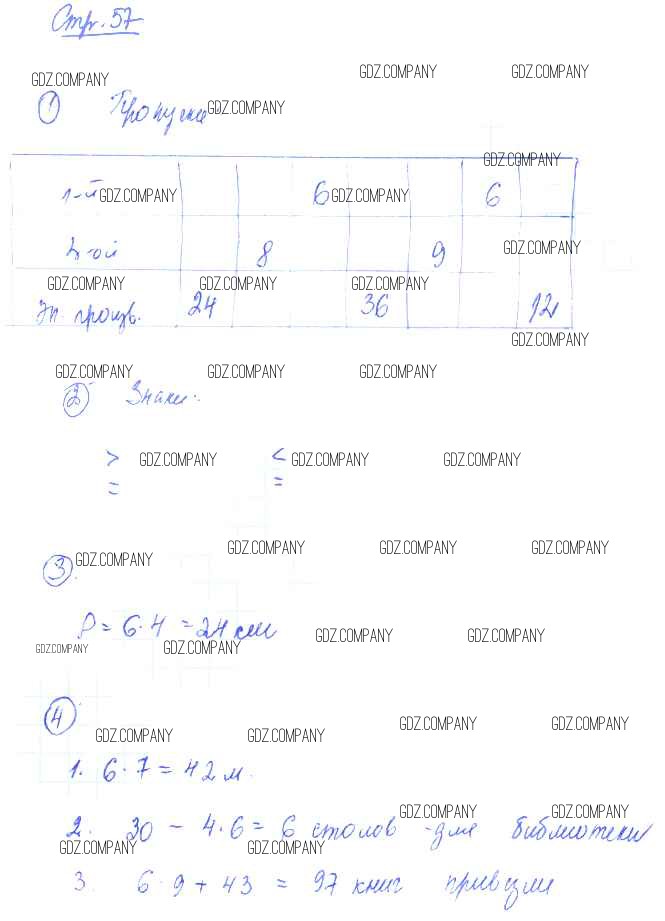 Стр. 57
GDZ.COMPANY GDZ.COMPANY GDZ.COMPANY
① Пропуски. GDZ.COMPANY
GDZ.COMPANY
1-й GDZ.COMPANY 6 GDZ.COMPANY 6
2-ой 8 9 GDZ.COMPANY
GDZ.COMPANY GDZ.COMPANY GDZ.COMPANY
Зн произв. 24 36 12
GDZ.COMPANY
GDZ.COMPANY GDZ.COMPANY GDZ.COMPANY
② Знаки.
> GDZ.COMPANY < GDZ.COMPANY GDZ.COMPANY
= =
GDZ.COMPANY GDZ.COMPANY GDZ.COMPANY
③ GDZ.COMPANY
P = 6·4 = 24 см
GDZ.COMPANY GDZ.COMPANY GDZ.COMPANY GDZ.COMPANY
④
GDZ.COMPANY GDZ.COMPANY GDZ.COMPANY GDZ.COMPANY
1. 6·7 = 42 м.
GDZ.COMPANY GDZ.COMPANY
2. 30 - 4·6 = 6 столов - для библиотеки
GDZ.COMPANY GDZ.COMPANY
3. 6·9 + 43 = 97 книг привезли